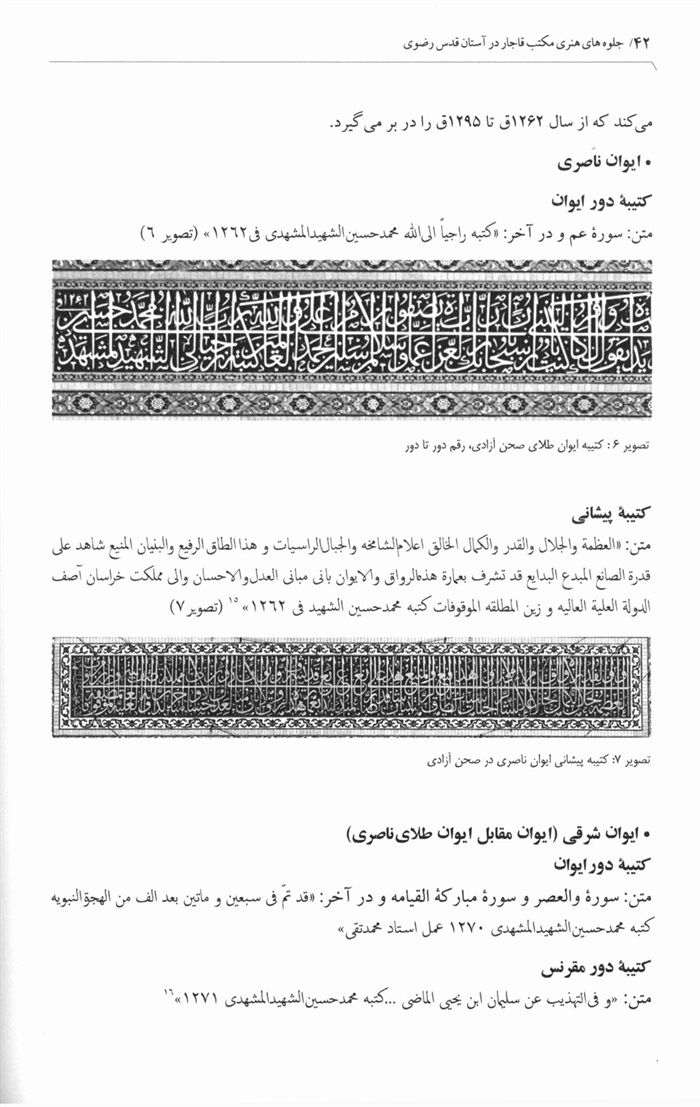 ۴۲/ جلوه های هنری مکتب قاجار در آستان قدس رضوی
می‌کند که از سال ۱۲۶۲ق تا ۱۲۹۵ق را در بر می‌گیرد.
• ایوان ناصری
کتیبهٔ دور ایوان
متن: سورهٔ عم و در آخر: «کتبه راجیاً الی‌الله محمدحسین‌الشهید‌المشهدی فی۱۲۶۲» (تصویر ۶)
تصویر ۶: کتیبه ایوان طلای صحن آزادی، رقم دور تا دور
کتیبهٔ پیشانی
متن: «العظمة والجلال والقدر والکمال الخالق اعلام‌الشامخه والجبال‌الراسیات و هذا الطاق الرفیع والبنیان المنیع شاهد علی
قدرة الصانع المبدع البدایع قد تشرف بعمارة هذه‌الرواق والایوان بانی مبانی العدل‌والاحسان والی مملکت خراسان آصف
الدولة العلیة العالیه و زین المطلقه الموقوفات کتبه محمدحسین الشهید فی ۱۲۶۲» ۱۵ (تصویر۷)
تصویر ۷: کتیبه پیشانی ایوان ناصری در صحن آزادی
• ایوان شرقی (ایوان مقابل ایوان طلای‌ناصری)
کتیبهٔ دور ایوان
متن: سورهٔ والعصر و سورهٔ مبارکهٔ القیامه و در آخر: «قد تمّ فی سبعین و ماتین بعد الف من الهجوة‌النبویه
کتبه محمدحسین‌الشهید‌المشهدی ۱۲۷۰ عمل استاد محمدتقی»
کتیبهٔ دور مقرنس
متن: «و فی‌التهذیب عن سلیمان ابن یحیی الماضی ...کتبه محمدحسین‌الشهید‌المشهدی ۱۲۷۱»۱۶